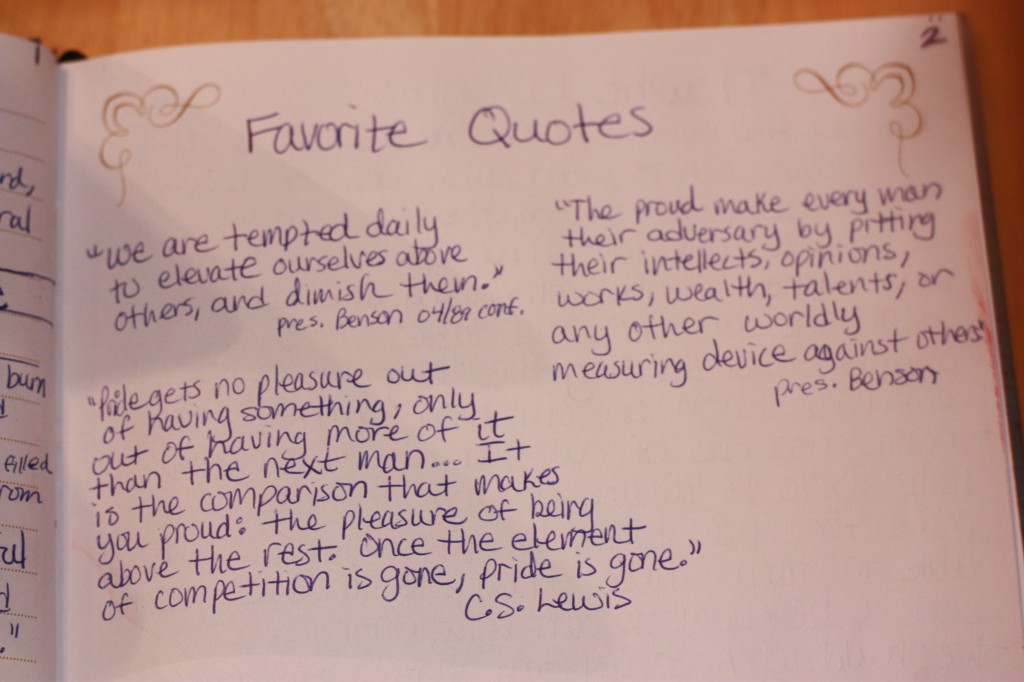 1
rd,
ral
burn
filled
rom
"
2
Favorite Quotes
"We are tempted daily
to elevate ourselves above
others, and dimish them."
pres. Benson 04/89 conf.
"Pride gets no pleasure out
of having something, only
out of having more of it
than the next man... It
is the comparison that makes
you proud: the pleasure of being
above the rest. Once the element
of competition is gone, pride is gone."
C.S. Lewis
"The proud make every man
their adversary by pitting
their intellects, opinions,
works, wealth, talents, or
any other worldly
measuring device against others"
pres. Benson